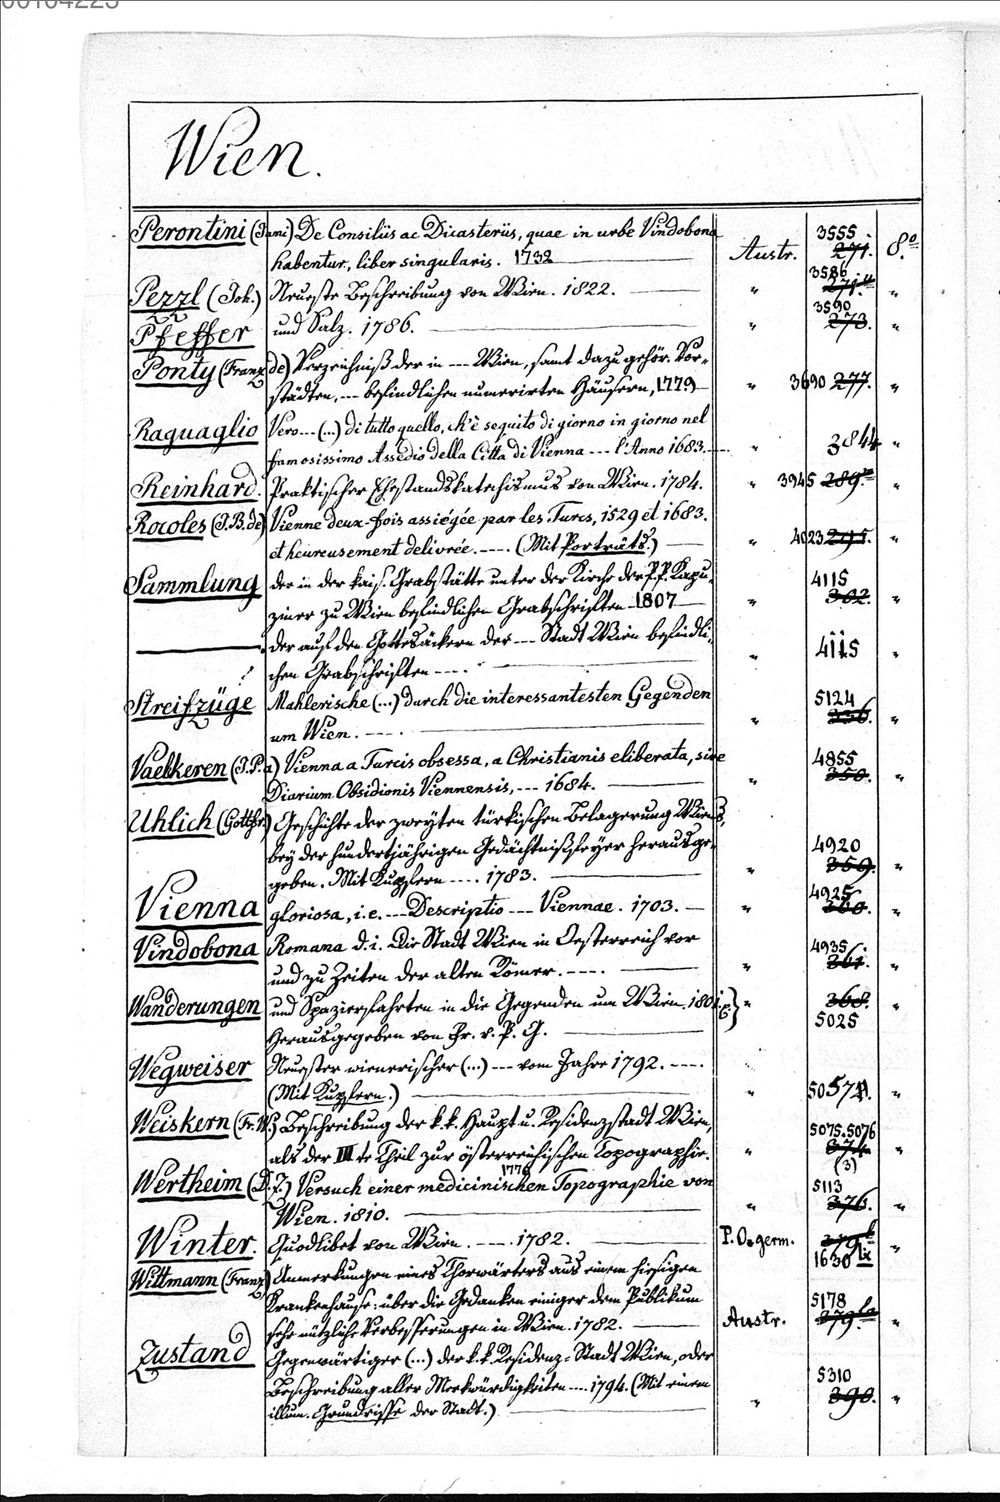 Wien.
Perontini (Jani) De Consiliis ac Dicasteriis, quae in urbe Vindobona 3555.
habentur, liber singularis. 1732 Austr. 271. 8.o
3586
Pezzl (Joh.) Neueste Beschreibung von Wien. 1822. " 271 "
3590
Pfeffer und Salz. 1786. " 273. "
Ponty (Franz de) Verzeichniß der in --- Wien, samt dazu gehör. Vor-
städten, --- befindlichen numerirten Häusern, 1779 " 3690 277. "
Raguaglio Vero --- (...) di tutto quello, ch'è seguito di giorno in giorno nel
famosissimo Assedio della Citta di Vienna --- l'Anno 1683. " 3844 "
Reinhard. Praktischer Ehestandskatechismus von Wien. 1784. " 3945 289. "
Rocoles (J.B. de) Vienne deux-fois assiégée par les Turcs, 1529 et 1683.
et heureusement delivrée. ---- (Mit Porträts.) " 4023 295. "
Sammlung der in der kais. Grabstätte unter der Kirche der P.P. Kapu- 4115
ziner zu Wien befindlichen Grabschriften 1807 " 302. "
——— der auf den Gottesäckern der --- Stadt Wien befindli-
chen Grabschriften ---- " 4115 "
Streifzüge Mahlerische (...) durch die interessantesten Gegenden 5124
um Wien. ---- " 336. "
Vaelkeren (J.P. a) Vienna a Turcis obsessa, a Christianis eliberata, sive 4855
Diarium Obsidionis Viennensis, --- 1684. " 350. "
Uhlich (Gottfr.) Geschichte der zweyten türkischen Belagerung Wiens,
bey der hundertjährigen Gedächtnißfeyer herausge- 4920
geben. Mit Kupfern ---- 1783. " 359. "
4925
Vienna gloriosa, i.e. --- Descriptio --- Viennae. 1703. " 360. "
Vindobona Romana d.i. Die Stadt Wien in Oesterreich vor 4935
und zu Zeiten der alten Römer. ---- " 361. "
Wanderungen und Spazierfahrten in die Gegenden um Wien. 1801. " 368. "
Herausgegeben von Fr. v. P. G. 5025
Wegweiser Neuester wienerischer (...) --- vom Jahre 1792. ----
(Mit Kupfern.) " 5057 "
Weiskern (Fr. W.) Beschreibung der k.k. Haupt u. Residenzstadt Wien, 5075.5076
als der III te Theil zur österreichischen Topographie. " 374. "
1770 (3)
Wertheim (D. Z.) Versuch einer medicinischen Topographie von 5113
Wien. 1810. " 376. "
Winter. Quodlibet von Wien. ---- 1782. P. O. germ. "
1630
Wittmann (Franz) Anmerkungen eines Thorwärters aus einem hiesigen
Krankenhause: über die Gedanken einiger dem Publikum 5178
sehr nützliche Verbesserungen in Wien. 1782. Austr. 379. "
Zustand Gegenwärtiger (...) der k.k. Residenz-Stadt Wien, oder
Beschreibung aller Merkwürdigkeiten --- 1794. (Mit einem 5310
illum. Grundrisse der Stadt.) " 390. "